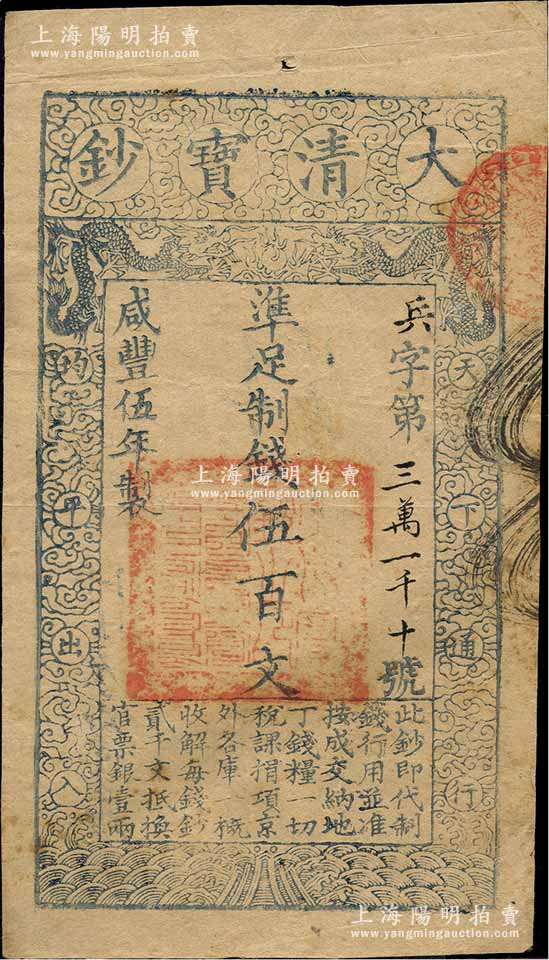 上海陽明拍賣
www.yangmingauction.com
上海陽明拍賣
www.yangmingauction.com
大清寶鈔
天下通行
兵字第三萬一千十號
準足制錢伍百文
咸豐伍年製
均平出入
此鈔即代制
錢行用並准
按成交納地
丁錢糧一切
稅課捐項京
外各庫一概
收解每錢鈔
貳千文抵換
官票銀壹兩
上海陽明拍賣
www.yangmingauction.com
上海陽明拍賣
www.yangmingauction.com